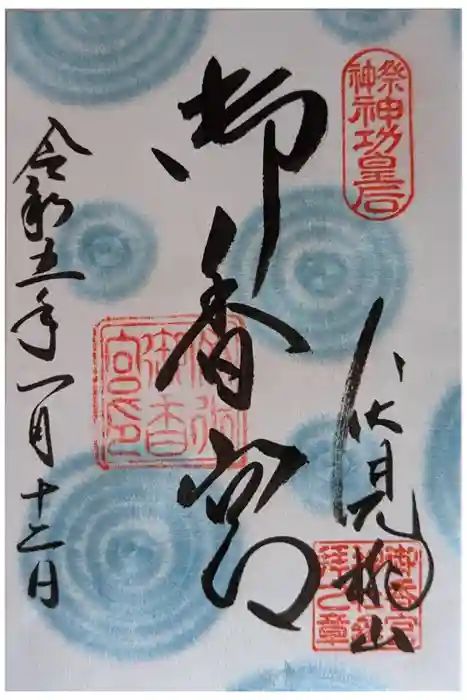 祭神
神功皇后
伏見桃山
御香宮
拝之章
御香宮
御香
宮印
令和五年一月十二日